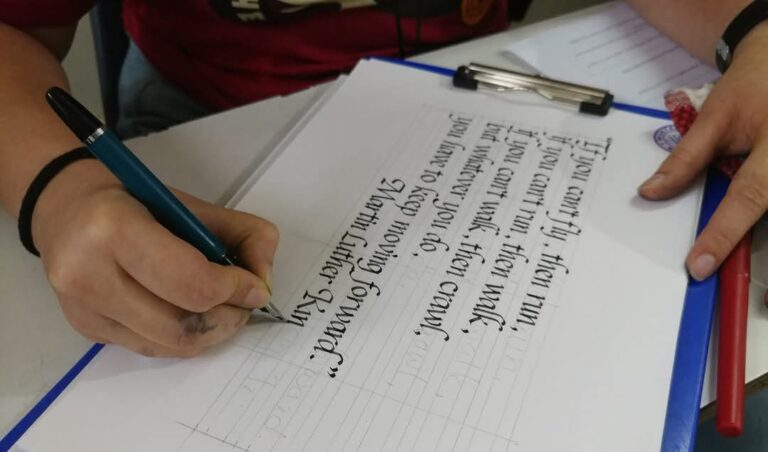 "If you can't fly, then run,
if you can't run, then walk,
if you can't walk, then crawl,
but whatever you do,
you have to keep moving forward."
Martin Luther Kin